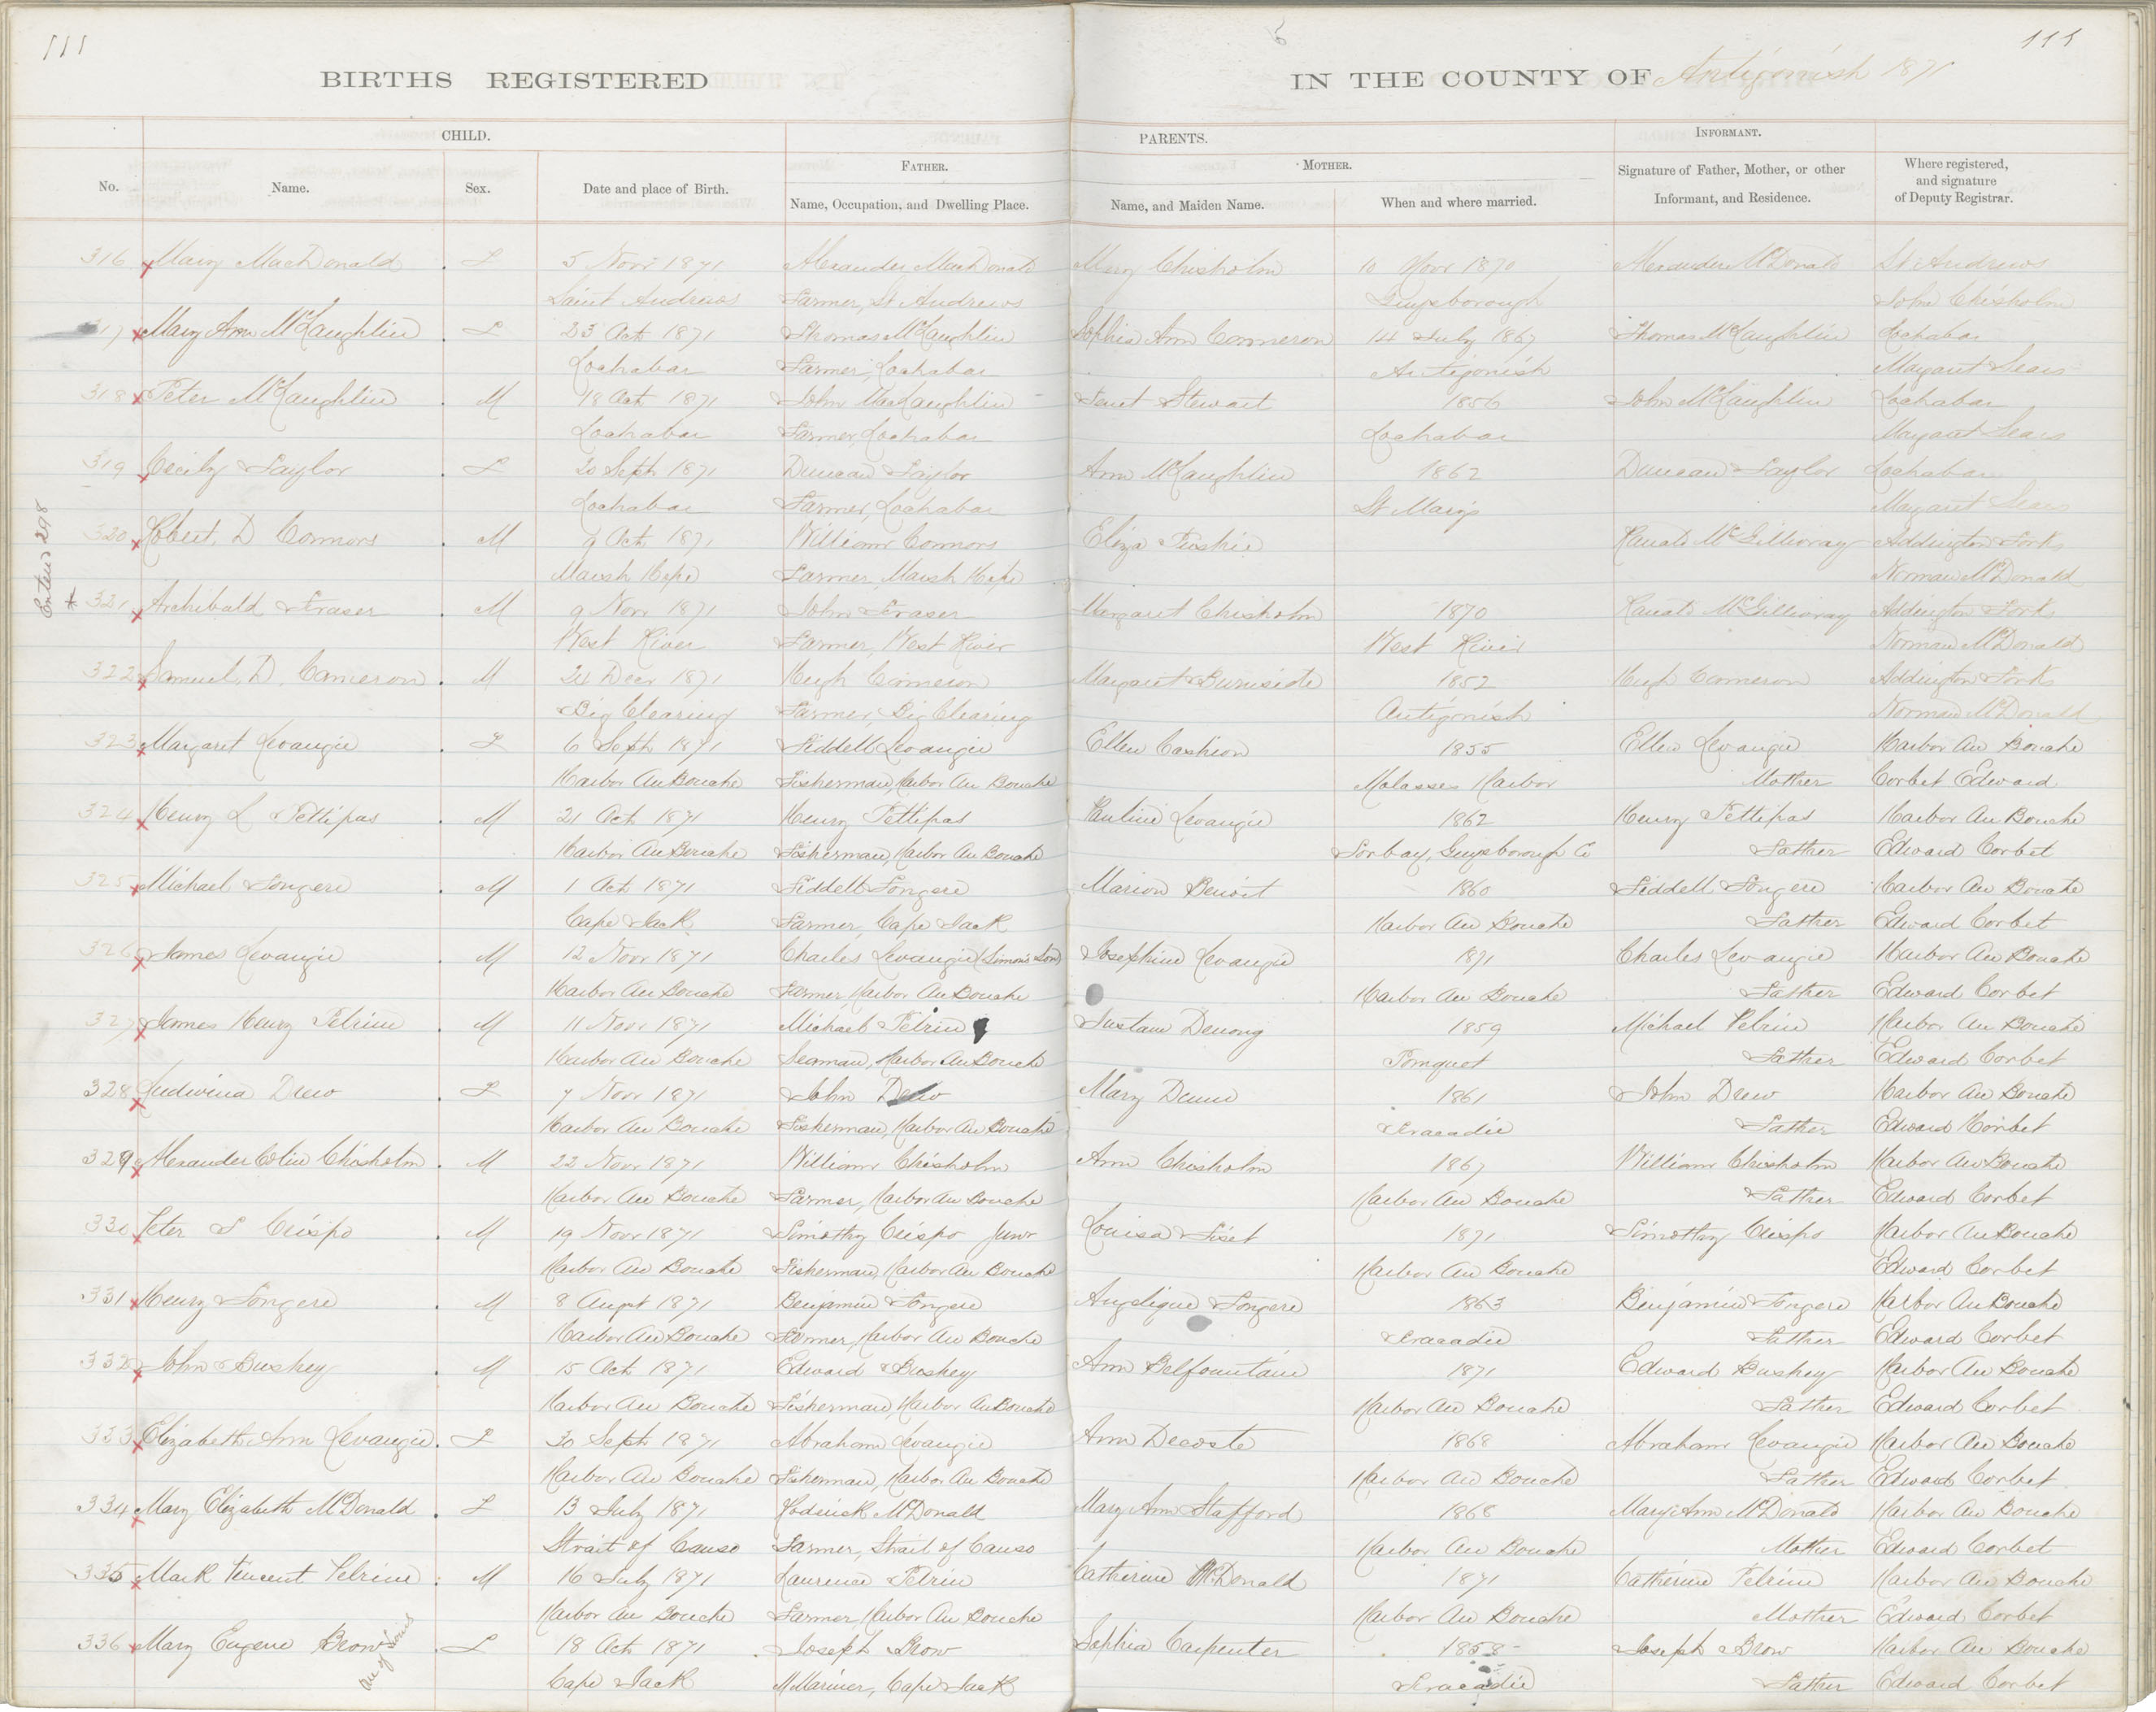 111
111
BIRTHS REGISTERED IN THE COUNTY OF Antigonish 1871
CHILD. PARENTS. INFORMANT.
FATHER. MOTHER.
No. Name. Sex. Date and place of Birth. Name, Occupation, and Dwelling Place. Name, and Maiden Name. When and where married. Signature of Father, Mother, or other Informant, and Residence. Where registered, and signature of Deputy Registrar.
316 Mary MacDonald F 5 Novr 1871 Alexander MacDonald Mary Chisholm 10 Novr 1870 Alexander McDonald St Andrews
Saint Andrews Farmer, St Andrews Guysborough John Chisholm
317 Mary Ann McLaughlin F 23 Oct 1871 Thomas McLaughlin Sophia Ann Commeron 14 July 1867 Thomas McLaughlin Lochabar
Lochabar Farmer, Lochabar Antigonish Margaret Sears
318 Peter McLaughlin M 18 Oct 1871 John MacLaughlin Jenet Stewart 1856 John McLaughlin Lochabar
Lochabar Farmer, Lochabar Lochabar Margaret Sears
319 Cecily Taylor F 20 Sept 1871 Duncan Taylor Ann McLaughlin 1862 Duncan Taylor Lochabar
Lochabar Farmer, Lochabar St Marys Margaret Sears
320 Robert D Connors M 9 Oct 1871 William Connors Eliza Ranald McGillivray Addington Forks
Marsh Hope Farmer, Marsh Hope Norman McDonald
Entered 298
* 321 Archibald Fraser M 9 Novr 1871 John Fraser Margaret Chisholm 1870 Ranald McGillivray Addington Forks
West River Farmer, West River West River Norman McDonald
322 Samuel. D. Cameron M 24 Decr 1871 Hugh Cameron Margaret Burnside 1852 Hugh Cameron Addington Forks
Big Clearing Farmer, Big Clearing Antigonish Norman McDonald
323 Margaret Levangie F 6 Sept 1871 Fiddell Levangie Ellen Cashion 1855 Ellen Levangie Harbor Au Bouche
Harbor Au Bouche Fisherman, Harbor Au Bouche Molasses Harbor Mother Corbet Edward
324 Henry L Pettipas M 21 Oct 1871 Henry Pettipas Pauline Levangie 1862 Henry Pettipas Harbor Au Bouche
Harbor Au Bouche Fisherman, Harbor Au Bouche Torbay, Guysborough Co Father Edward Corbet
325 Michael Fongere M 1 Oct 1871 Fiddell Fongere Marion Benoit 1860 Fiddell Fongere Harbor Au Bouche
Cape Jack Farmer, Cape Jack Harbor Au Bouche Father Edward Corbet
326 James Levangie M 12 Novr 1871 Charles Levangie (Simon's Son) Josephine Levangie 1871 Charles Levangie Harbor Au Bouche
Harbor Au Bouche Farmer, Harbor Au Bouche Harbor Au Bouche Father Edward Corbet
327 James Henry Pelrine M 11 Novr 1871 Michael Pelrine Deuong 1859 Michael Pelrine Harbor Au Bouche
Harbor Au Bouche Seaman, Harbor Au Bouche Pomquet Father Edward Corbet
328 Ludwina Drew F 7 Novr 1871 John Drew Mary 1861 John Drew Harbor Au Bouche
Harbor Au Bouche Fisherman, Harbor Au Bouche Tracadie Father Edward Corbet
329 Alexander Colin Chisholm M 22 Novr 1871 William Chisholm Ann Chisholm 1867 William Chisholm Harbor Au Bouche
Harbor Au Bouche Farmer, Harbor Au Bouche Harbor Au Bouche Father Edward Corbet
330 Peter S Crispo M 19 Novr 1871 Timothy Crispo Junr Louisa Fiset 1871 Timothy Crispo Harbor Au Bouche
Harbor Au Bouche Fisherman, Harbor Au Bouche Harbor Au Bouche Edward Corbet
331 Henry Fongere M 8 Augst 1871 Benjamin Fongere Angelique Fongere 1863 Benjamin Fongere Harbor Au Bouche
Harbor Au Bouche Farmer, Harbor Au Bouche Tracadie Father Edward Corbet
332 John Bushey M 15 Oct 1871 Edward Bushey Ann Belfountain 1871 Edward Bushey Harbor Au Bouche
Harbor Au Bouche Fisherman, Harbor Au Bouche Harbor Au Bouche Father Edward Corbet
333 Elizabeth Ann Levangie F 30 Sept 1871 Abraham Levangie Ann Decoste 1868 Abraham Levangie Harbor Au Bouche
Harbor Au Bouche Fisherman, Harbor Au Bouche Harbor Au Bouche Father Edward Corbet
334 Mary Elizabeth McDonald F 13 July 1871 Roderick McDonald Mary Ann Stafford 1868 Mary Ann McDonald Harbor Au Bouche
Strait of Canso Farmer, Strait of Canso Harbor Au Bouche Mother Edward Corbet
335 Mark Vincent Pelrine M 16 July 1871 Laurence Pelrine Catherine McDonald 1871 Catherine Pelrine Harbor Au Bouche
Harbor Au Bouche Farmer, Harbor Au Bouche Harbor Au Bouche Mother Edward Corbet
336 Mary Eugene Brow F 18 Oct 1871 Joseph Brow Sophia Carpenter 1858 Joseph Brow Harbor Au Bouche
Cape Jack M Mariner, Cape Jack Tracadie Father Edward Corbet